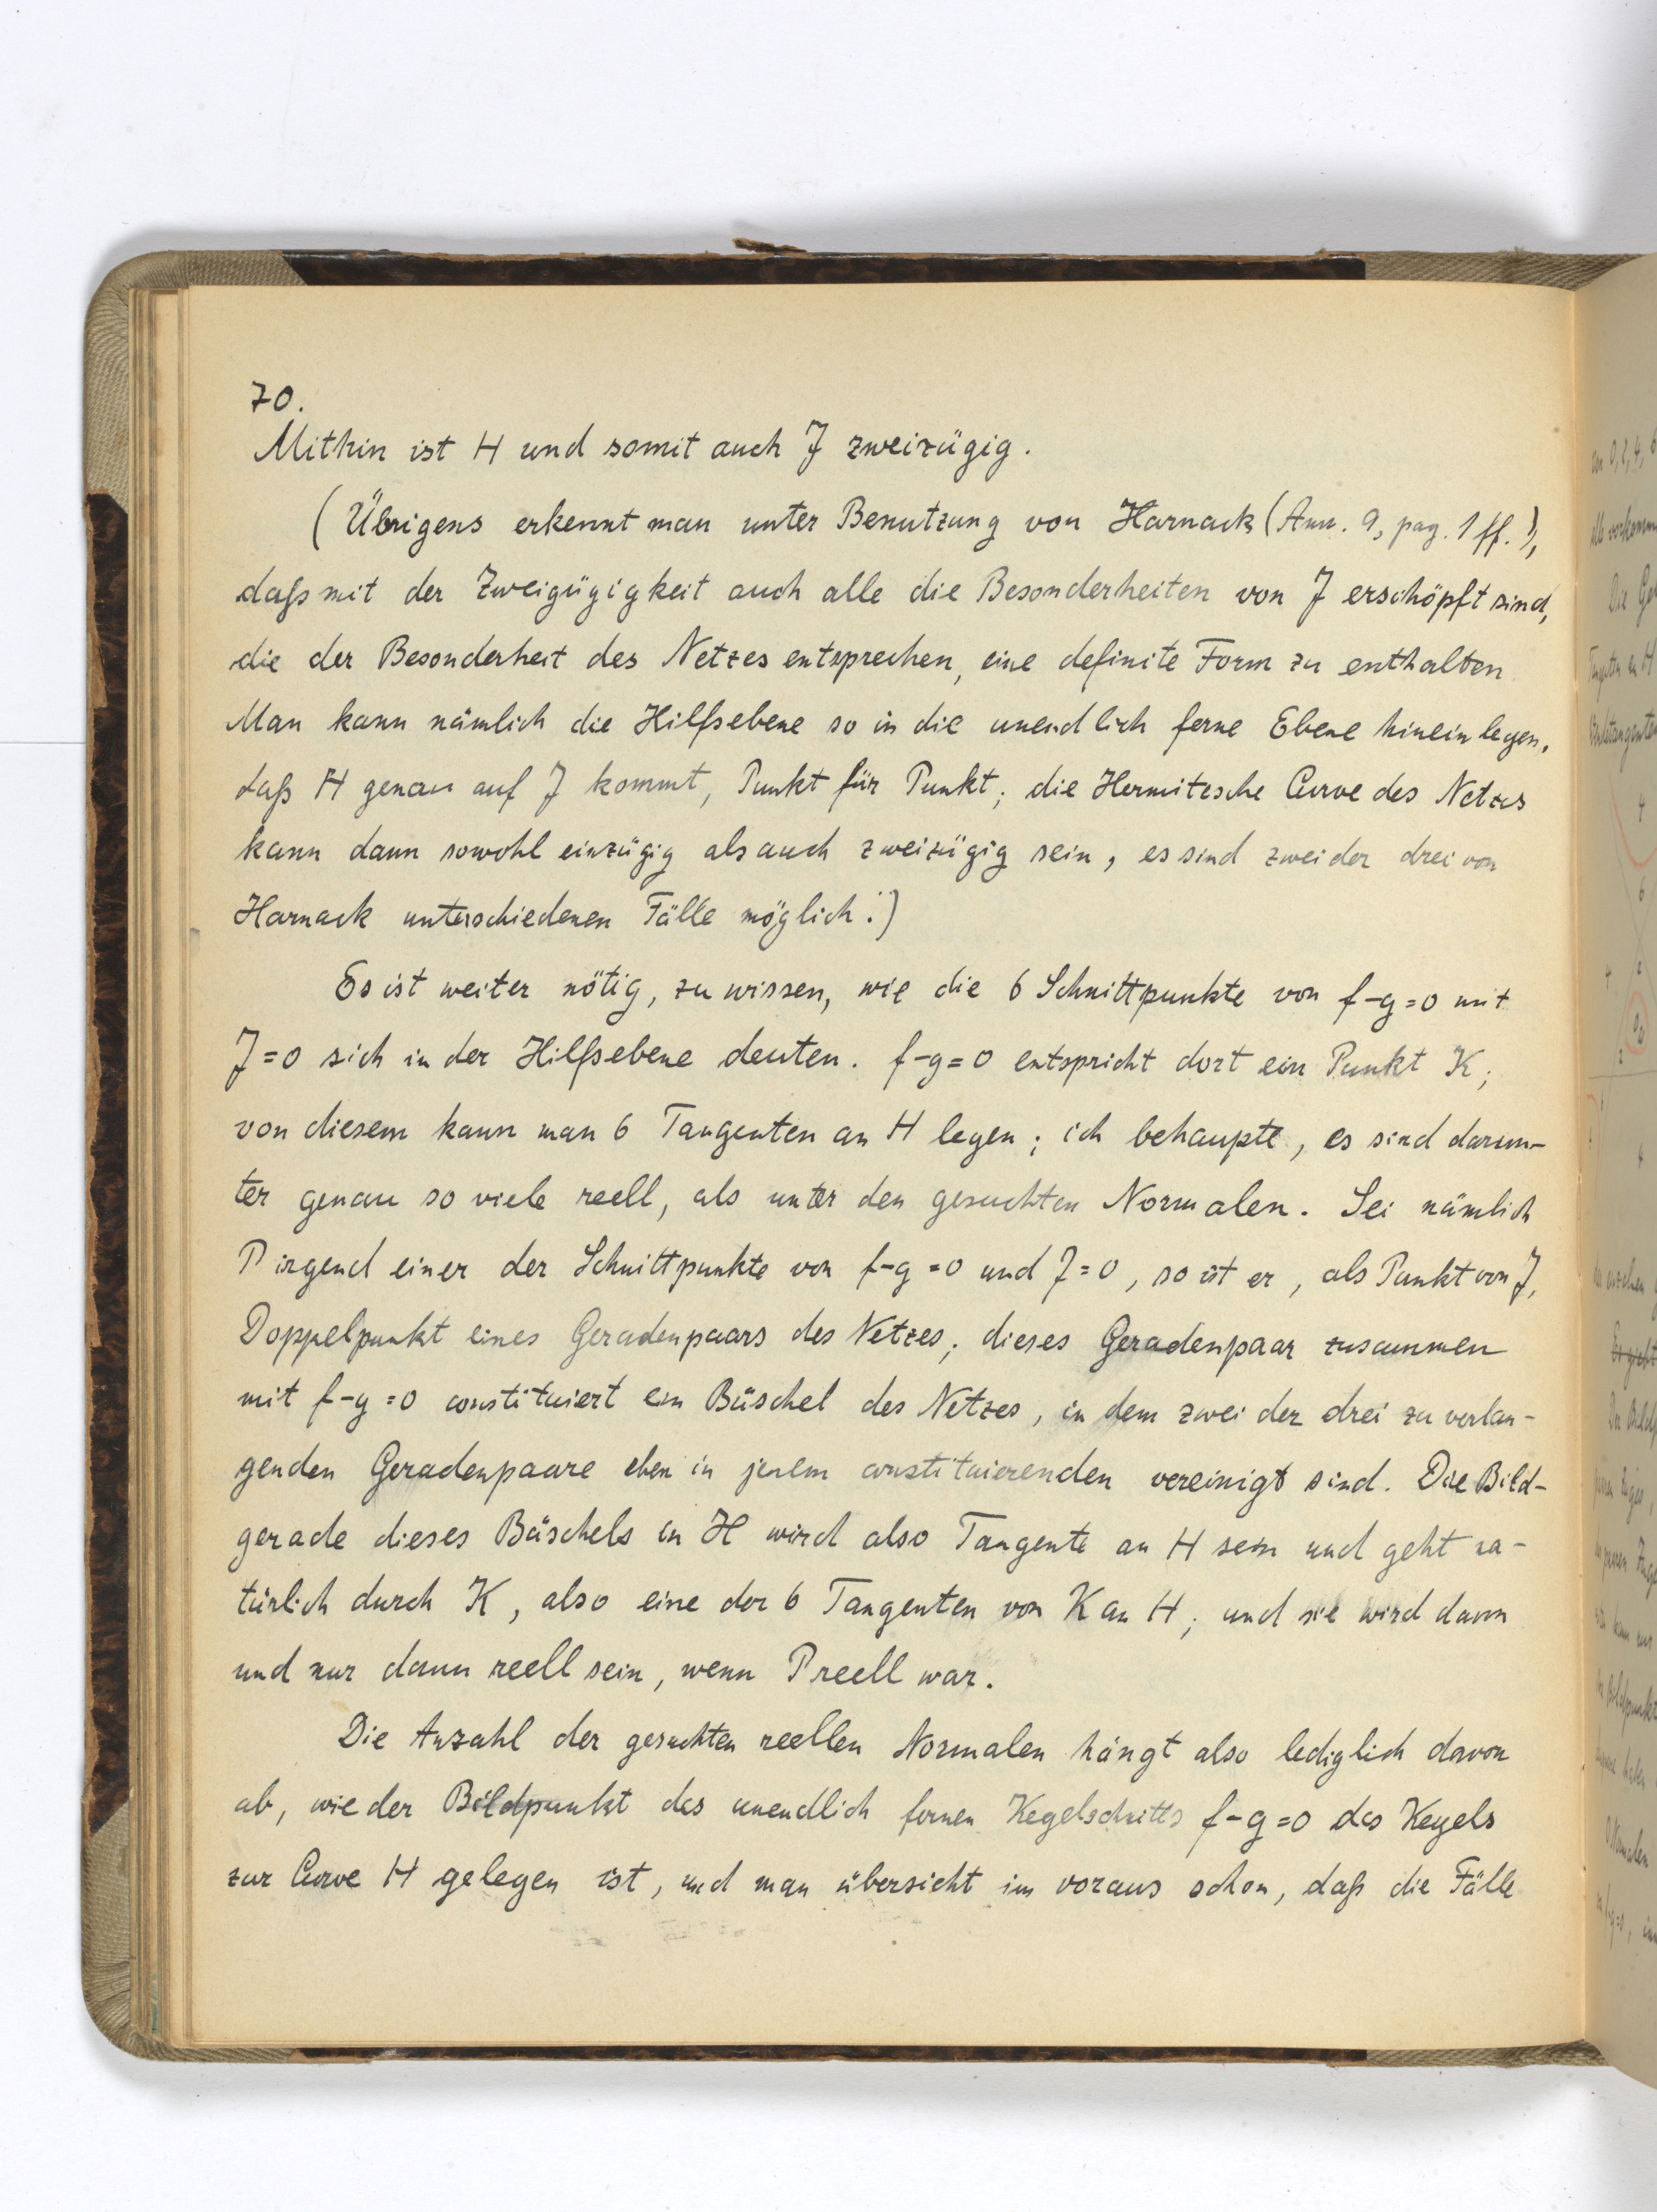 70.
Mithin ist H und somit auch J zweizügig.
(Übrigens erkennt man unter Benutzung von Harnack (Ann. 9, pag. 1 ff.),
daß mit der Zweizügigkeit auch alle die Besonderheiten von J erschöpft sind,
die der Besonderheit des Netzes entsprechen, eine definite Form zu enthalten
Man kann nämlich die Hilfsebene so in die unendlich ferne Ebene hineinlegen,
daß H genau auf J kommt, Punkt für Punkt; die Hermitesche Curve des Netzes
kann dann sowohl einzügig als auch zweizügig sein, es sind zwei der drei von
Harnack unterschiedenen Fälle möglich.)
Es ist weiter nötig, zu wissen, wie die 6 Schnittpunkte von f-g=0 mit
J=0 sich in der Hilfsebene deuten. f-g=0 entspricht dort ein Punkt K;
von diesem kann man 6 Tangenten an H legen; ich behaupte, es sind darun-
ter genau so viele reell, als unter den gesuchten Normalen. Sei nämlich
P irgend einer der Schnittpunkte von f-g=0 und J=0, so ist er, als Punkt von J,
Doppelpunkt eines Geradenpaars des Netzes; dieses Geradenpaar zusammen
mit f-g=0 constituiert ein Büschel des Netzes, in dem zwei der drei zu verlan-
genden Geradenpaare eben in jenem constituierenden vereinigt sind. Die Bild-
gerade dieses Büschels in H wird also Tangente an H sein und geht na-
türlich durch K, also eine der 6 Tangenten von K an H; und sie wird dann
und nur dann reell sein, wenn P reell war.
Die Anzahl der gesuchten reellen Normalen hängt also lediglich davon
ab, wie der Bildpunkt des unendlich fernen Kegelschnitts f-g=0 des Kegels
zur Curve H gelegen ist, und man übersieht im voraus schon, daß die Fälle